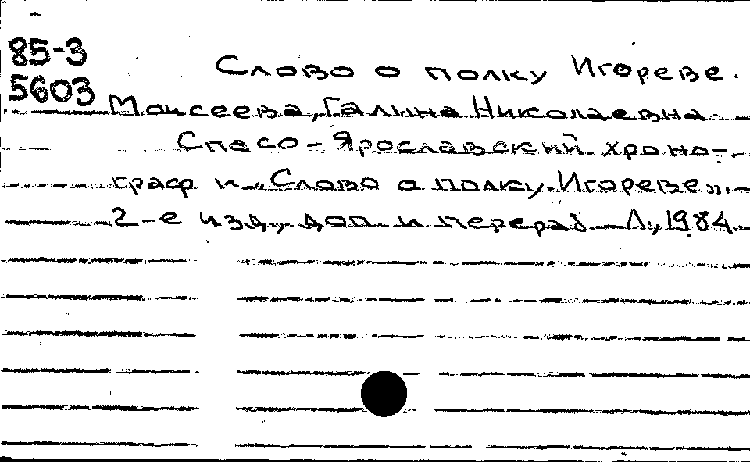 85-3
5603
Слово о полку Игореве.
Моисеева, Галина Николаевна
Спасо-Ярославский хроно-
граф и „Слово о полку Игореве”.-
2-е изд., доп. и перераб. Л., 1984